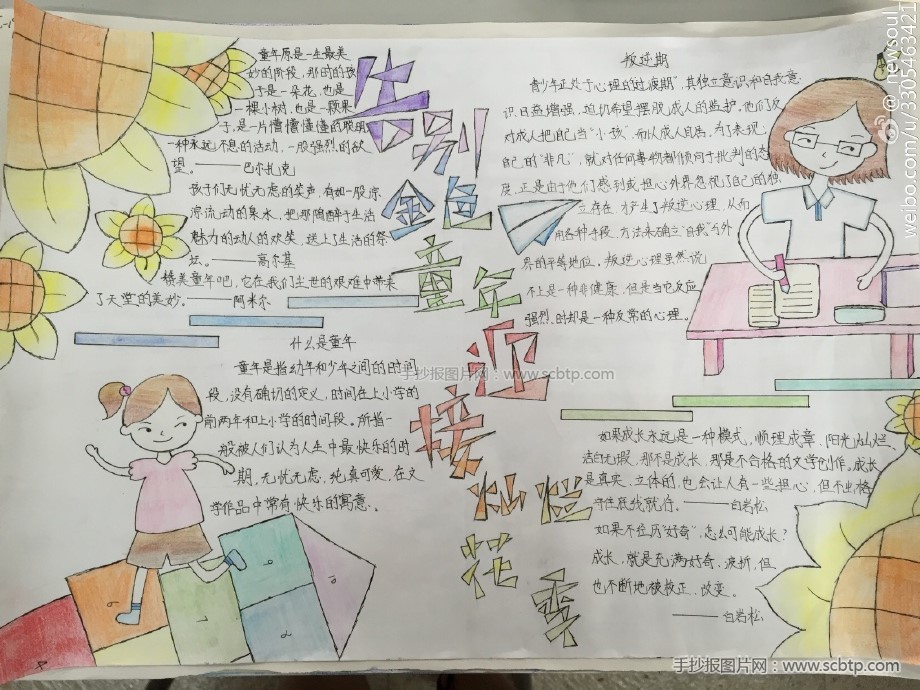 童年原是一生最美
妙的阶段，那时的孩
子是一朵花，也是
一棵小树，也是一颗果
子，是一片懵懵懂懂的聪明
一种永远不息的活动，一股强烈的欲
望。——巴尔扎克
孩子们无忧无虑的笑声，有如一股淙
淙流动的泉水，把那陶醉于生活
魅力的动人的欢笑，送上了生活的祭
坛。——高尔基
赞美童年吧，它在我们尘世的艰难中带来
了天堂的美妙。——阿米尔
什么是童年
童年是指幼年和少年之间的时间
段，没有确切的定义，时间在上小学的
前两年和上小学的时间段。所指一
般被人们认为人生中最快乐的时
期，无忧无虑，纯真可爱，在文
学作品中常有快乐的寓意。
告别
金色
童年
迎
接
灿烂
花季
叛逆期
青少年正处于心理的"过渡期"，其独立意识和自我意
识日益增强，迫切希望摆脱成人的监护。他们反
对成人把自己当"小孩"，而以成人自居。为了表现
自己的"非凡"，就对任何事物都倾向于批判的态
度。正是由于他们感到或担心外界忽视了自己的独
立存在，才产生了叛逆心理，从而
用各种手段、方法来确立"自我"与外
界的平等地位。叛逆心理虽然说
不上是一种非健康，但是当它反应
强烈时却是一种反常的心理。
如果成长永远是一种模式，顺理成章，阳光灿烂，
洁白无瑕，那不是成长，那是不合格的文学创作。成长
是真实、立体的，也会让人有一些担心，但不出格
守住底线就行。——白岩松
如果不经历"好奇"，怎么可能成长？
成长，就是充满好奇，波折，但
也不断地被校正、改变。
——白岩松
手抄报图片网：www.scbtp.com
手抄报图片网：www.scbtp.com
@newsoul
weibo.com/u/330546342